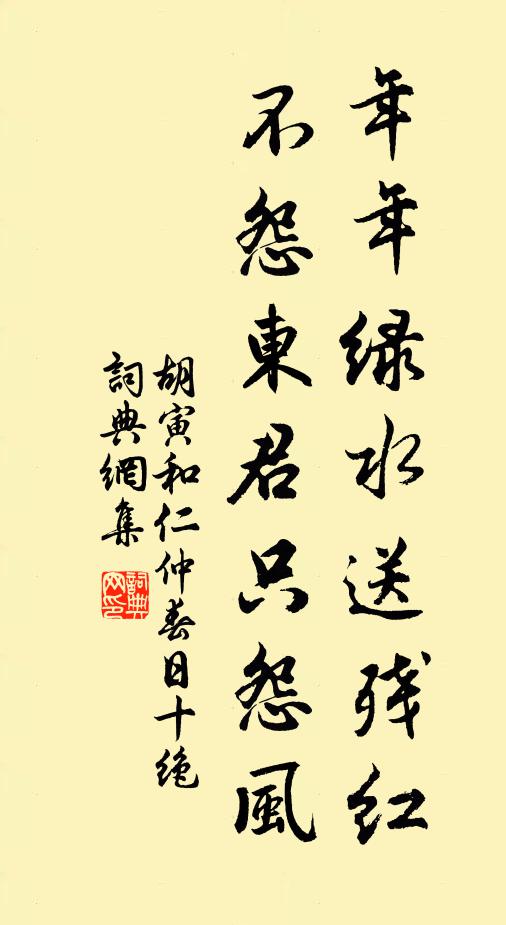 年年绿水送残红
不怨東君只怨風
胡寅和仁仲春日十绝
詞典網集
詞典网印